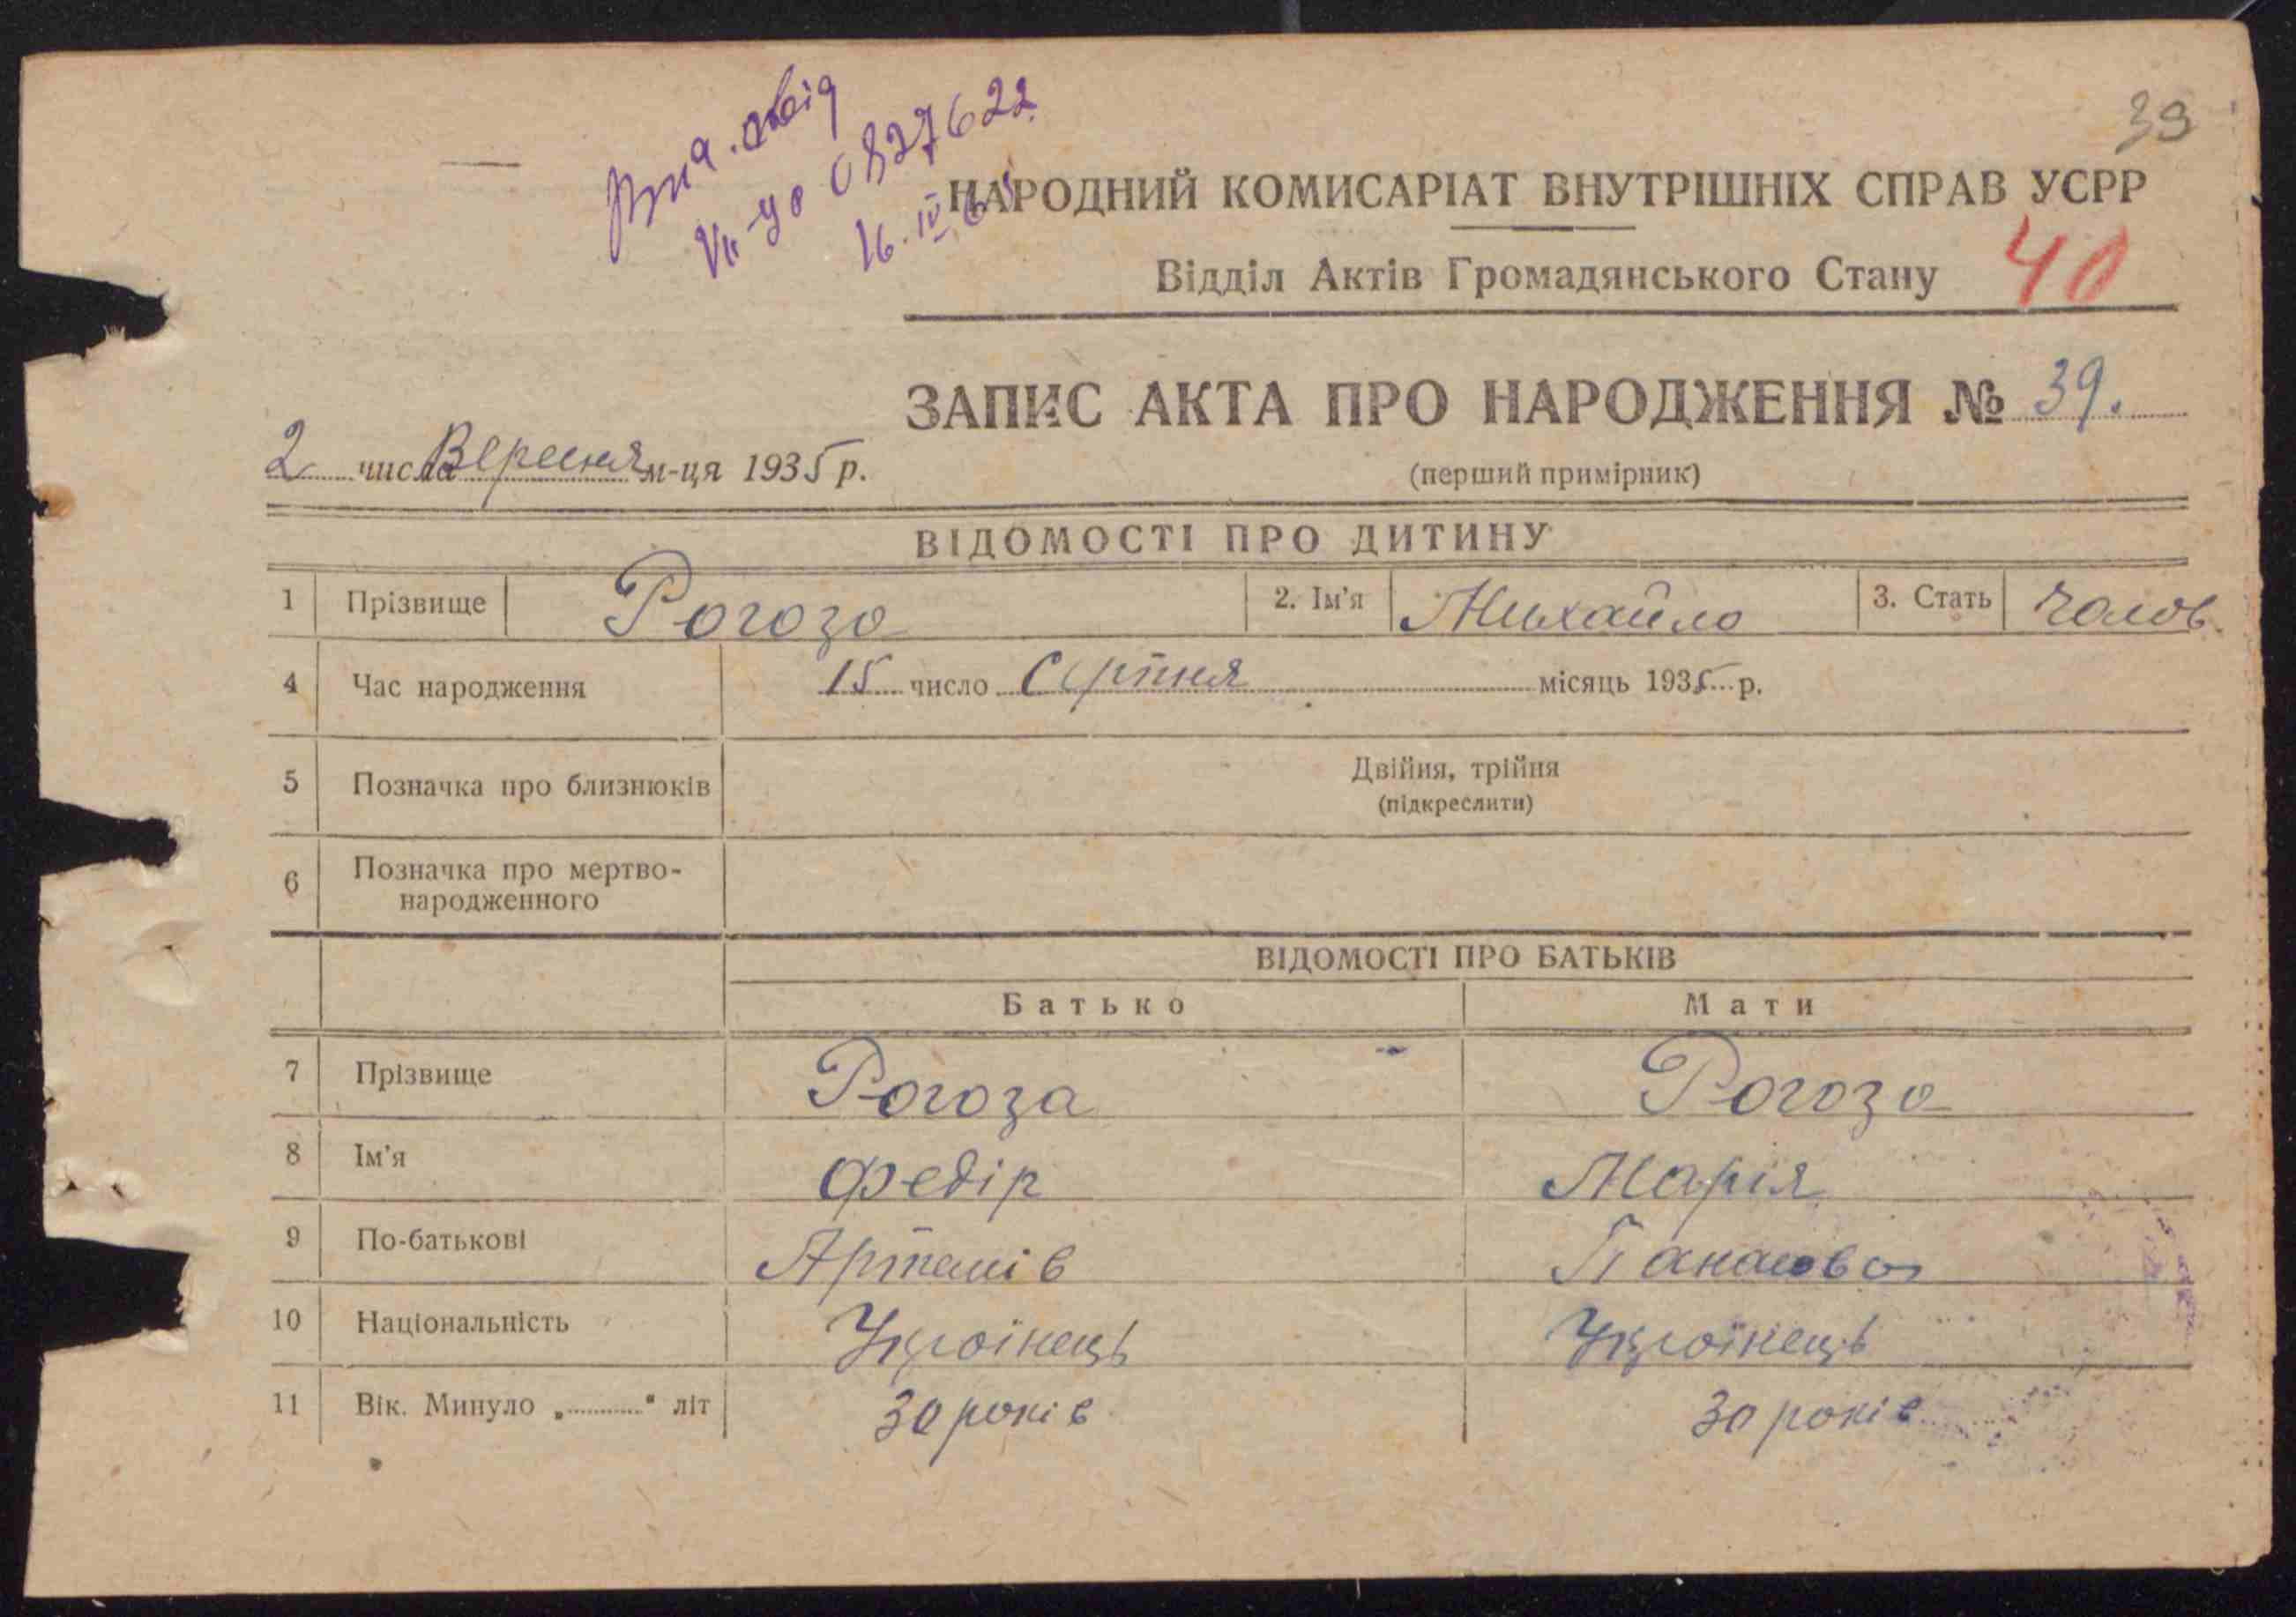 39
Вид. свід
VII-УО 0827622
16. IV
НАРОДНИЙ КОМИСАРІАТ ВНУТРІШНІХ СПРАВ УСРР
Відділ Актів Громадянського Стану 40
ЗАПИС АКТА ПРО НАРОДЖЕННЯ № 39.
2 числа Вересня м-ця 1935 р.
(перший примірник)
ВІДОМОСТІ ПРО ДИТИНУ
1 Прізвище Рогозо 2. Ім'я Михайло 3. Стать чолов.
4 Час народження 15 число Серпня місяць 1935 р.
5 Позначка про близнюків Двійня, трійня
(підкреслити)
6 Позначка про мертво-
народженного
ВІДОМОСТІ ПРО БАТЬКІВ
Батько Мати
7 Прізвище Рогоза Рогозо
8 Ім'я Федір Марія
9 По-батькові Артемів Панасова
10 Національність Українець Українець
11 Вік. Минуло „..........“ літ 30 років 30 років